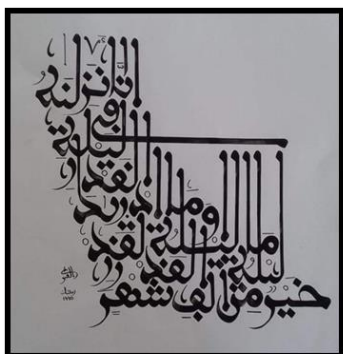 إنّا أنزلنه
في ليلة
القدر
وما أدريك
ما ليلة القدر
ليلة القدر
خير من ألف شهر